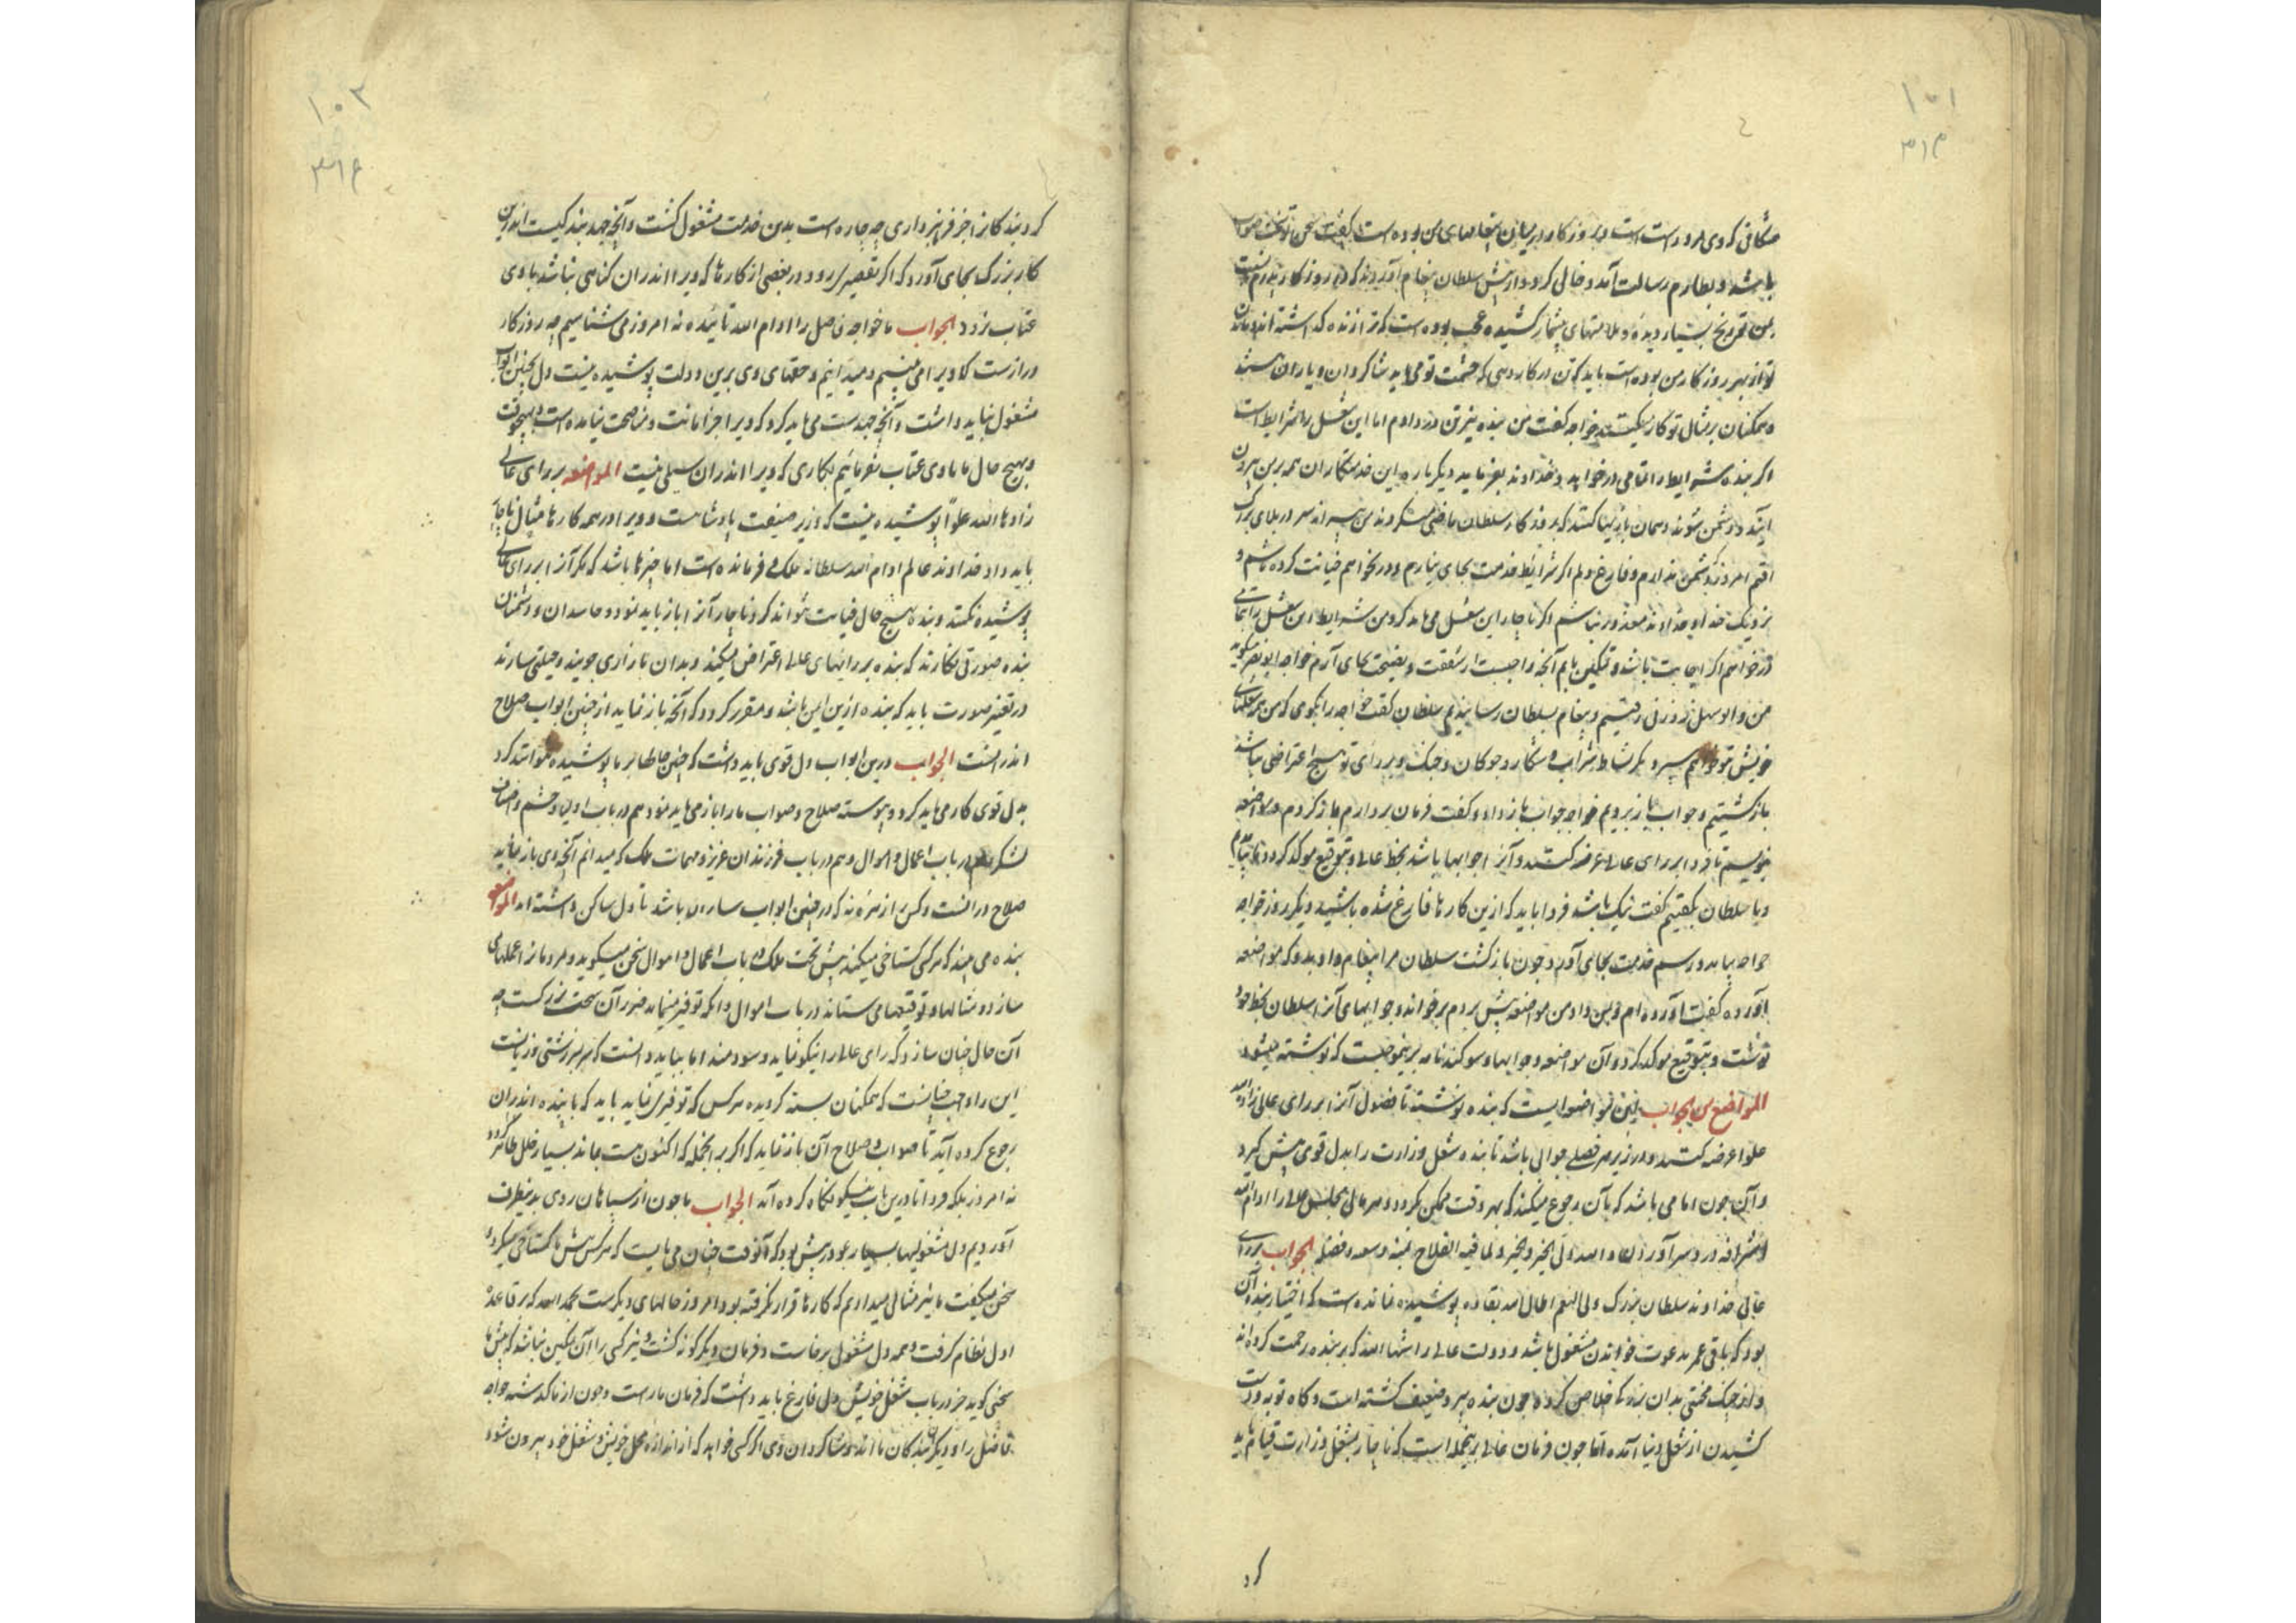 ۱۰۱
باشد و بطارم رسالت آمد و خالی کرد و از پیش سلطان پیغام آوردند که در روزگار پدرم
این تن رنج بسیار دیده و ملامتهای بیشمار کشیده و عجب بوده است که ترا زنده گذاشته اند و ماندن
تو از بهر روزگار من بوده است باید که تن در کار دهی که حشمت تو می باید شاگردان و یاران هستند
و همگنان بر مثال تو کار میکنند خواجه گفت من بنده نیز تن در دادم اما این شغل را شرایط است
اگر بنده شرایط را تمامی درخواهد و خداوند بفرماید دیگر باره این خدمتکاران همه بر من بیرون
آیند و دشمن شوند و همان بازیها کنند که بروزگار سلطان ماضی میکردند من نیز اندر بلای بزرگ
افتم امروز که دشمن ندارم و فارغ دلم اگر شرایط خدمت بجای نیارم و درنخواهم خیانت کرده باشم و
نزدیک خدا و خداوند معذور نباشم اگر ناچار این شغل می باید کرد من شرایط این شغل را بتمامی
درخواهم اگر اجابت باشد و تمکین یابم آنچه واجبست از شفقت و نصیحت بجای آرم خواجه ابونصر میگوید
من و ابوسهل زوزنی رفتیم و پیغام بسلطان رسانیدیم سلطان گفت خواجه را بگوی که من همه شغلهای
خویش بتو خواهم سپرد مگر نشاط و شراب و شکار و چوگان و جنگ و بر رای تو هیچ اعتراضی نباشد
بازگشتیم و جواب باز بردیم خواجه جواب باز داد و گفت فرمان بردارم باز گردم و مواضعه
نویسم تا فردا بر رای عالی عرضه کنند و آنرا جوابها باشد بخط عالی و بتوقیع موکد گردد باز بیامدیم
و با سلطان بگفتیم گفت نیک باشد فردا باید که ازین کارها فارغ شده باشید دیگر روز خواجه
خواجه بیامد و رسم خدمت بجای آورد و چون بازگشت سلطان مرا پیغام داد بدو که مواضعه
آورده گفت آورده ام و بمن داد من مواضعه پیش بردم برخواند و جوابهای آنرا سلطان بخط خود
نوشت و بتوقیع موکد کرد و آن مواضعه و جوابها و سوگندنامه برینموجبست که نوشته میشود
المواضع من الجواب این مواضعه ایست که بنده نوشته تا فضول آنرا بر رای عالی زاده الله
علوا عرضه کنند و در زیر هر فصلی جوابی باشد تا بنده شغل وزارت را بدل قوی پیش گیرد
و آن چون امامی باشد که بآن رجوع میکند که بهر وقت ممکن نگردد و هر حالی مجلس عالی را ادام الله
اشرافه دردسر آوردن و الله ولی الخیر و الخیره و لما فیه الفلاح بمنه و سعه و فضله الجواب بر رای
عالی خداوند سلطان بزرگ ولی النعم اطال الله بقاه پوشیده نمانده است که اختیار بنده آن
بود که باقی عمر بدعوت خواندن مشغول باشد و دولت عالی را اشتهاالله که بر بنده رحمت کرده اند
و از چنگ محنتی بدان بزرگی خلاص کرده چون بنده پیر و ضعیف گشته است و گاه توبه و دست
کشیدن از شغل دنیا آمده اما چون فرمان عالی برینجمله است که ناچار بشغل وزارت قیام باید
کرد
۱۰۲
کرد بندگانرا جز فرمانبرداری چه چاره است بدین خدمت مشغول گشت و آنچه جهد بندگیست اندرین
کار بزرگ بجای آورد که اگر تقصیر رود در بعضی از کارها که ویرا اندران گناهی نباشد با وی
عتاب نرود الجواب ما خواجه فاضل را ادام الله تائیده نه امروز می شناسیم چه روزگار
درازست که ویرا می بینیم و میدانیم و حقهای وی برین دولت پوشیده نیست دل بچنین ابواب
مشغول نباید داشت و آنچه جهدست می باید کرد که ویرا جز امانت و مناصحت نیامده است و بهیچ وقت
و بهیچ حال ما با وی عتاب نفرمائیم بکاری که ویرا اندران سبیلی نیست المواضعه بر رای عالی
زادها الله علوا پوشیده نیست که وزیر خلیفت پادشاهست و ویرا در همه کارها مثال ناچار
باید داد خداوند عالم ادام الله سلطانه ملکی فرمانده است اما چیزها باشد که مگر آنرا بر رای عالی
پوشیده کنند و بنده بهیچ حال خیانت نتواند کرد و ناچار آنرا باز باید نمود و حاسدان و دشمنان
بنده صورتی نگارند که بنده بر رایهای عالی اعتراض میکند و بدان بازاری جویند و حیلتی سازند
در تغییر صورت باید که بنده ازین ایمن باشد و مقرر گردد که آنچه باز نماید از چنین ابواب صلاح
اندرانست الجواب درین ابواب دل قوی باید داشت که چنین حالها بر ما پوشیده نتوانند کرد
بدل قوی کار می باید کرد و پیوسته صلاح و صواب ما را باز می باید نمود هم در باب اولیا و حشم و اصناف
لشکر و هم در باب اعمال و اموال و هم در باب فرزندان عزیز و مهمات ملک که میدانم آنچه وی باز نماید
صلاح درانست و کس را زهره نه که در چنین ابواب باشد تا دل ساکن داشته اند المواضعه
بنده می بیند که هر کسی گستاخی میکند پیش تخت ملک و در باب اعمال و اموال سخن میگوید و مردمانرا عملهای
سازد و مثالها و توقیعها می ستاند در باب اموال و آنکه توفیر مینماید ضرر آن سخت بزرگست چه
آن حال چنان سازد که رای عالی را نیکو نماید و سودمند اما بباید دانست که سربسر زشتی و زیانست
این را واجب چنانست که همگنان بسته گردیده هر کس که توفیری نماید باید که با بنده اندران
رجوع کرده آید تا صواب و صلاح آن باز نماید که اگر بر آنجمله که اکنون هست بماند بسیار خلل ظاهر گردد
نه امروز بلکه فردا تا درین باب نیکو نگاه کرده آید الجواب ما چون از سپاهان روی بدینطرف
آوردیم دل مشغولیها بسیار بود در پیش بود که آنوقت چنان می بایست که هر کس پیش ما گستاخی میکرد و
سخن میگفت ما نیز مثالی میدادیم که کارها قرار نگرفته بود امروز حالهای دیگرست بحمدالله که بر قاعده
اول نظام گرفت و همه دل مشغولی برخاست و فرمان دیگرگونه گشت و نیز کسی را آن تمکین نباشد که پیش ما
سخنی گوید جز در باب شغل خویش دل فارغ باید داشت که فرمان ماراست و چون از ما گذشته خواجه
فاضل را و دیگر بندگان ما اند و شاگردان وی اگر کسی خواهد که از اندازه محل خویش و شغل خود بیرون شود